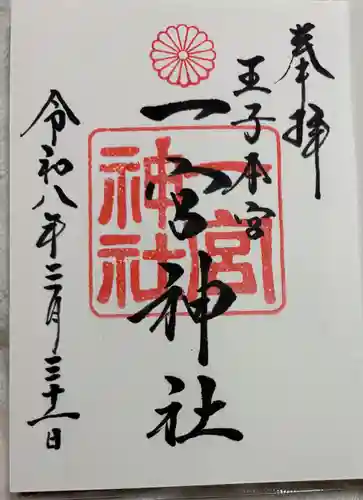 奉拝
王子本宮
一宮神社
令和八年二月二十一日
一宮
神社